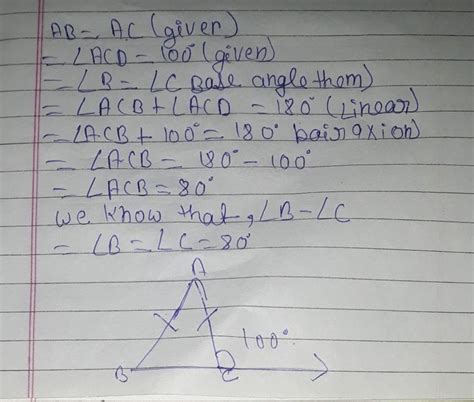 AB = AC (given)
= ∠ACD = 100° (given)
= ∠B = ∠C Base angle them)
= ∠ACB + ∠ACD = 180° (Linear)
= ∠ACB + 100° = 180° bair axion)
= ∠ACB = 180° - 100°
= ∠ACB = 80°
we know that, ∠B - ∠C
= ∠B = ∠C = 80°
A
100°
B C